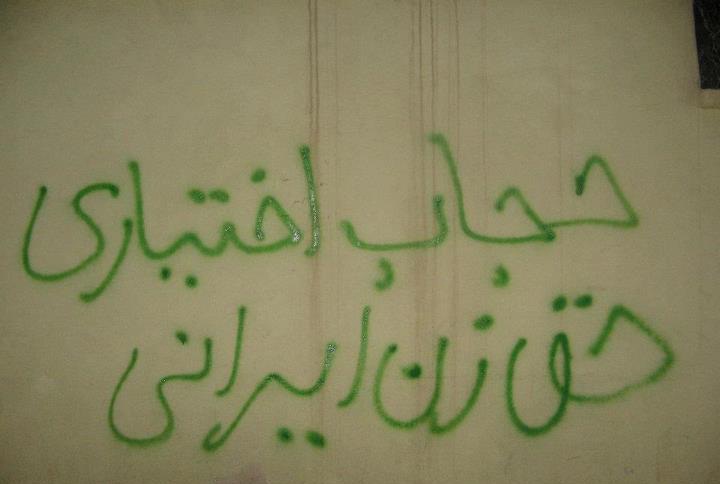 حجاب اختیاری
حق زن ایرانی